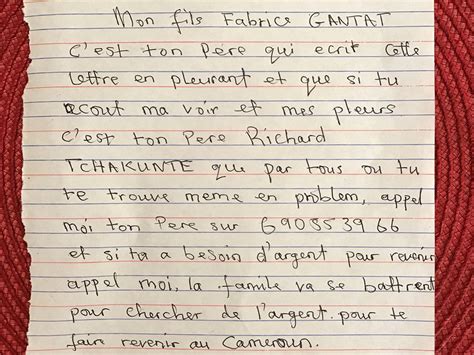 Mon fils Fabrice GANTAT
C'est ton Père qui ecrit cette
lettre en pleurant et que si tu
ecout ma voir et mes pleurs
C'est ton Pere Richard
TCHAKUNTE que par tous ou tu
te trouve meme en problem, appel
moi ton Pere sur 690553966
et si tu a besoin d'argent pour revenir
appel moi, la famile va se battrent
pour chercher de l'argent pour te
faire revenir au Cameroun.